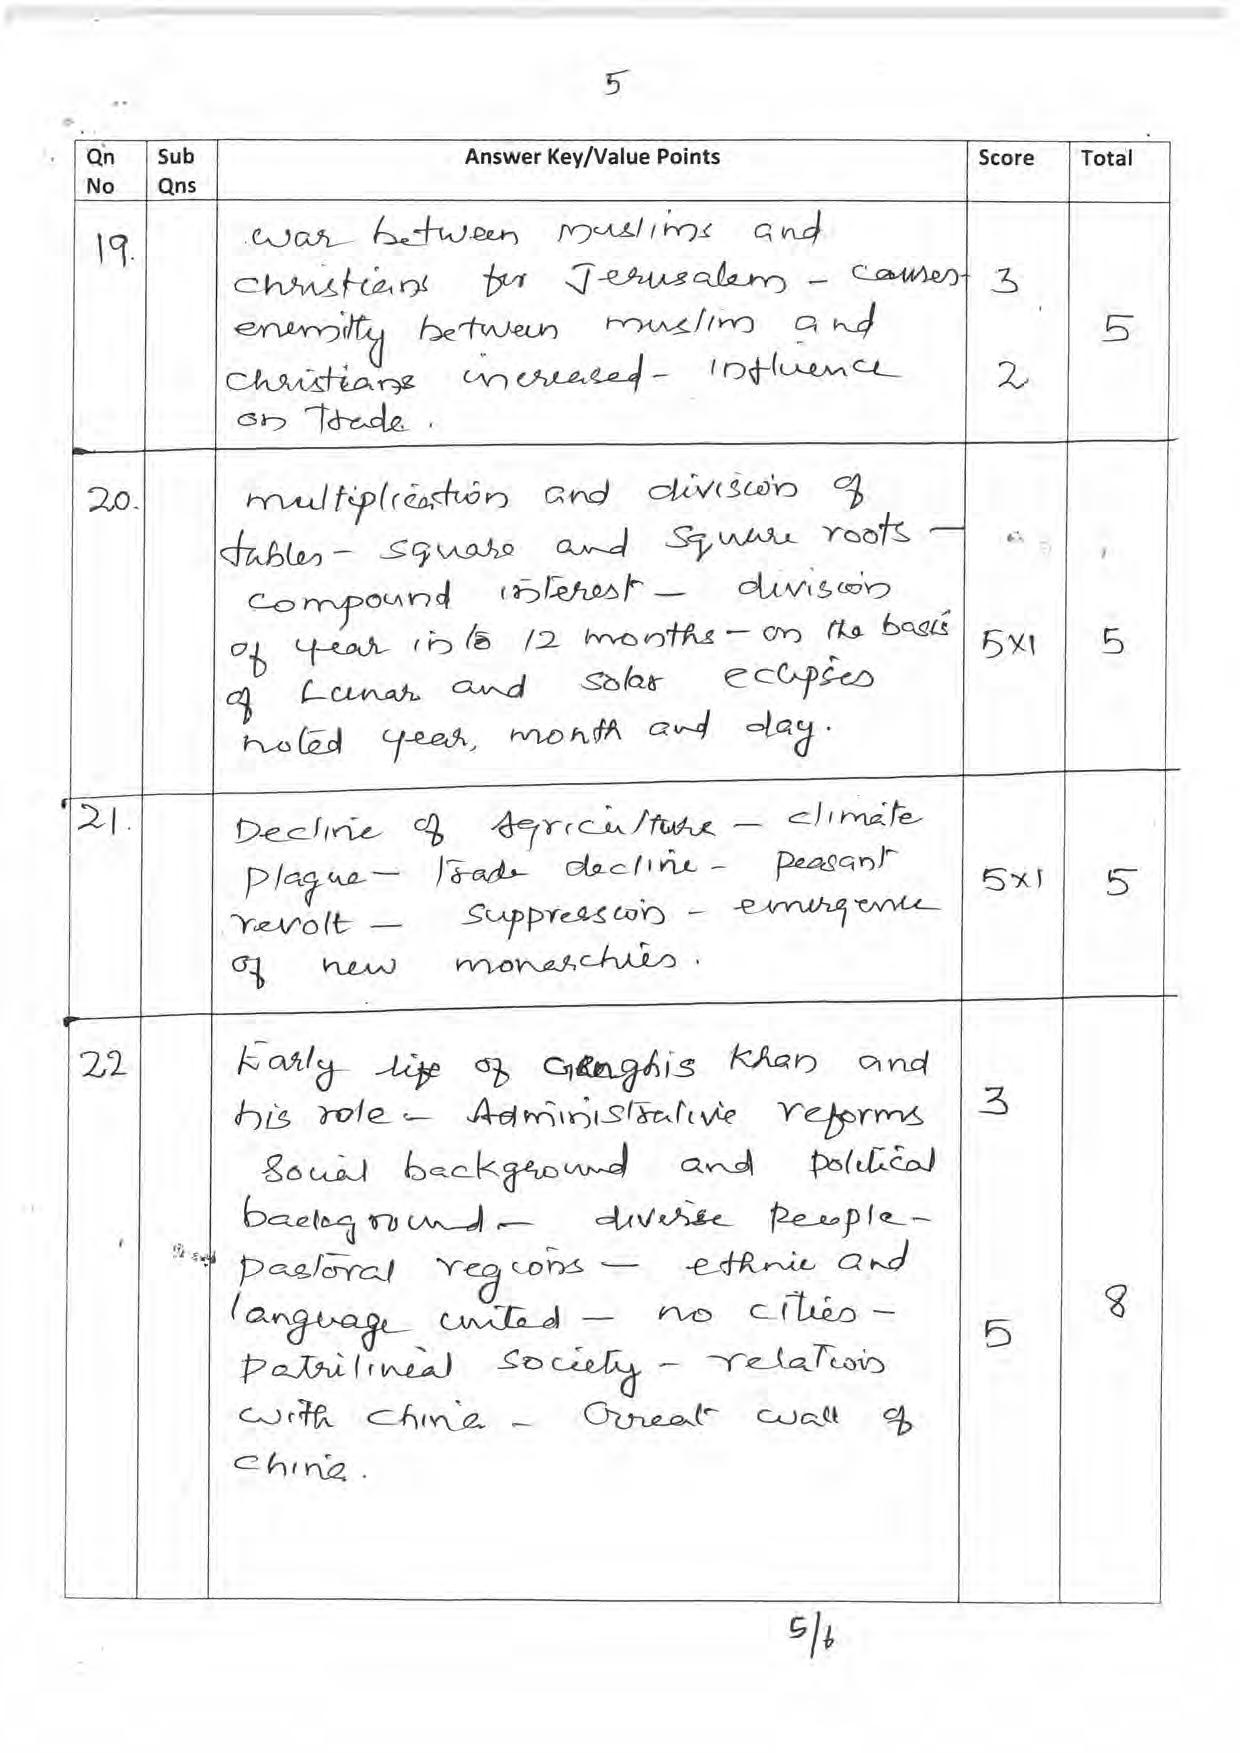 5
Qn No Sub Qns Answer Key/Value Points Score Total
19. war between muslims and
christians for Jerusalem - causes- 3
enemity between muslim and 5
christians increased - influence 2
on Trade.
20. multiplication and division of
tables - square and square roots -
compound interest - division
of year into 12 months - on the basis 5x1 5
of Lunar and solar eclipses
noted year, month and day.
21. Decline of Agriculture - climate
plague - Trade decline - peasant 5x1 5
revolt - suppression - emergence
of new monarchies.
22 Early life of Genghis Khan and
his role - Administrative reforms 3
Social background and political
background - diverse people -
pastoral regions - ethnic and
language united - no cities - 8
patrilineal society - relation 5
with china - Great wall of
china.
5/6